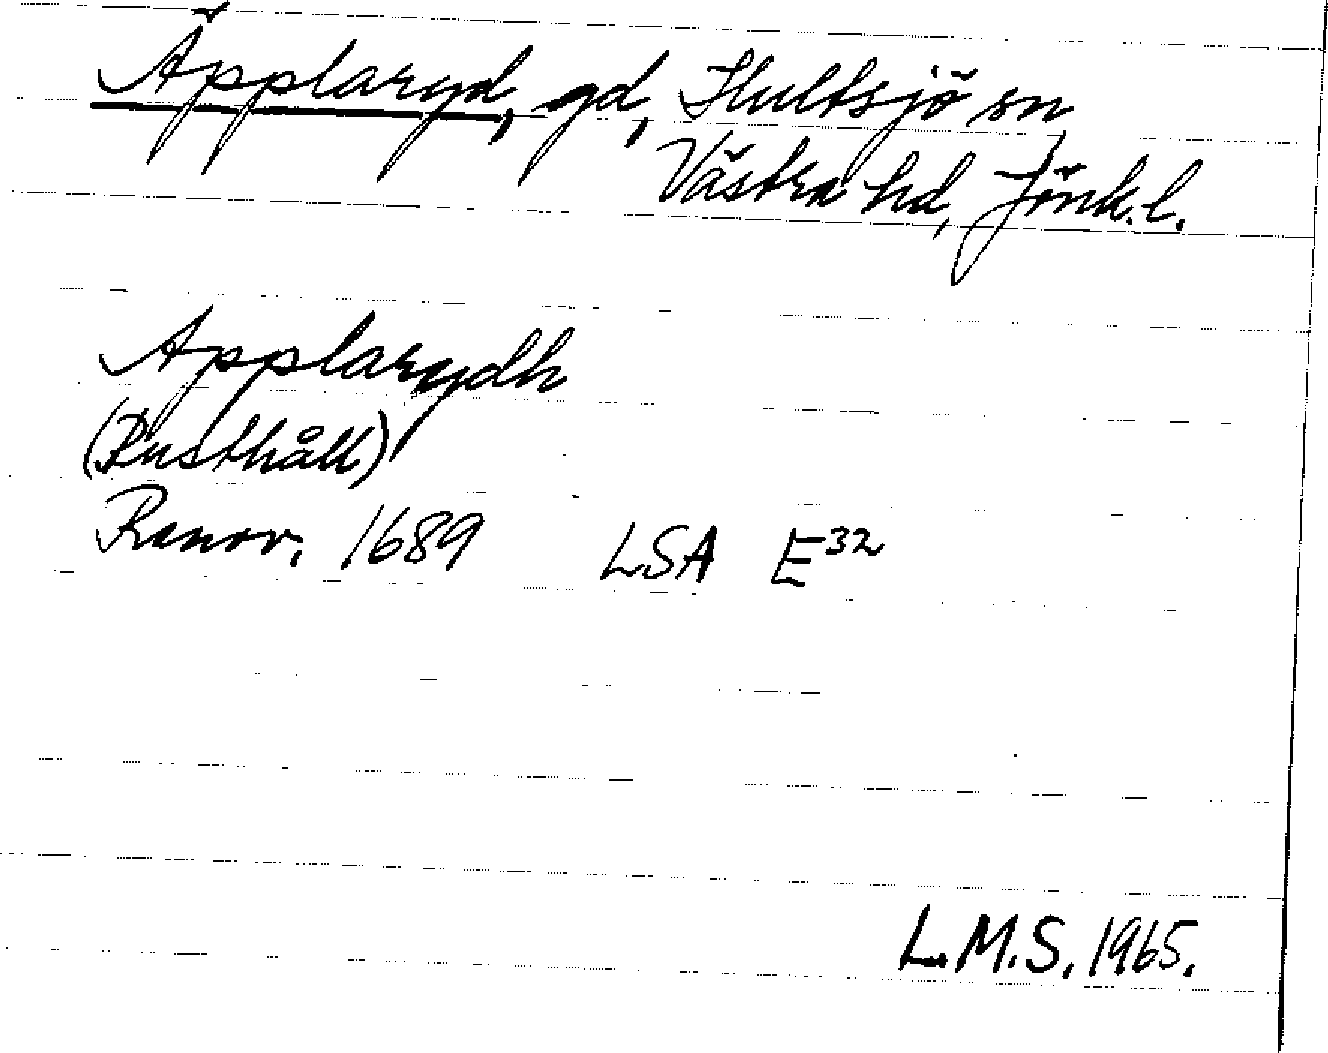 Äpplaryd, gd, Hultsjö sn,
Västra hd, Jönk.l.
Applarydh
(Rusthåll)
Renov. 1689 LSA E32
L.M.S. 1965.